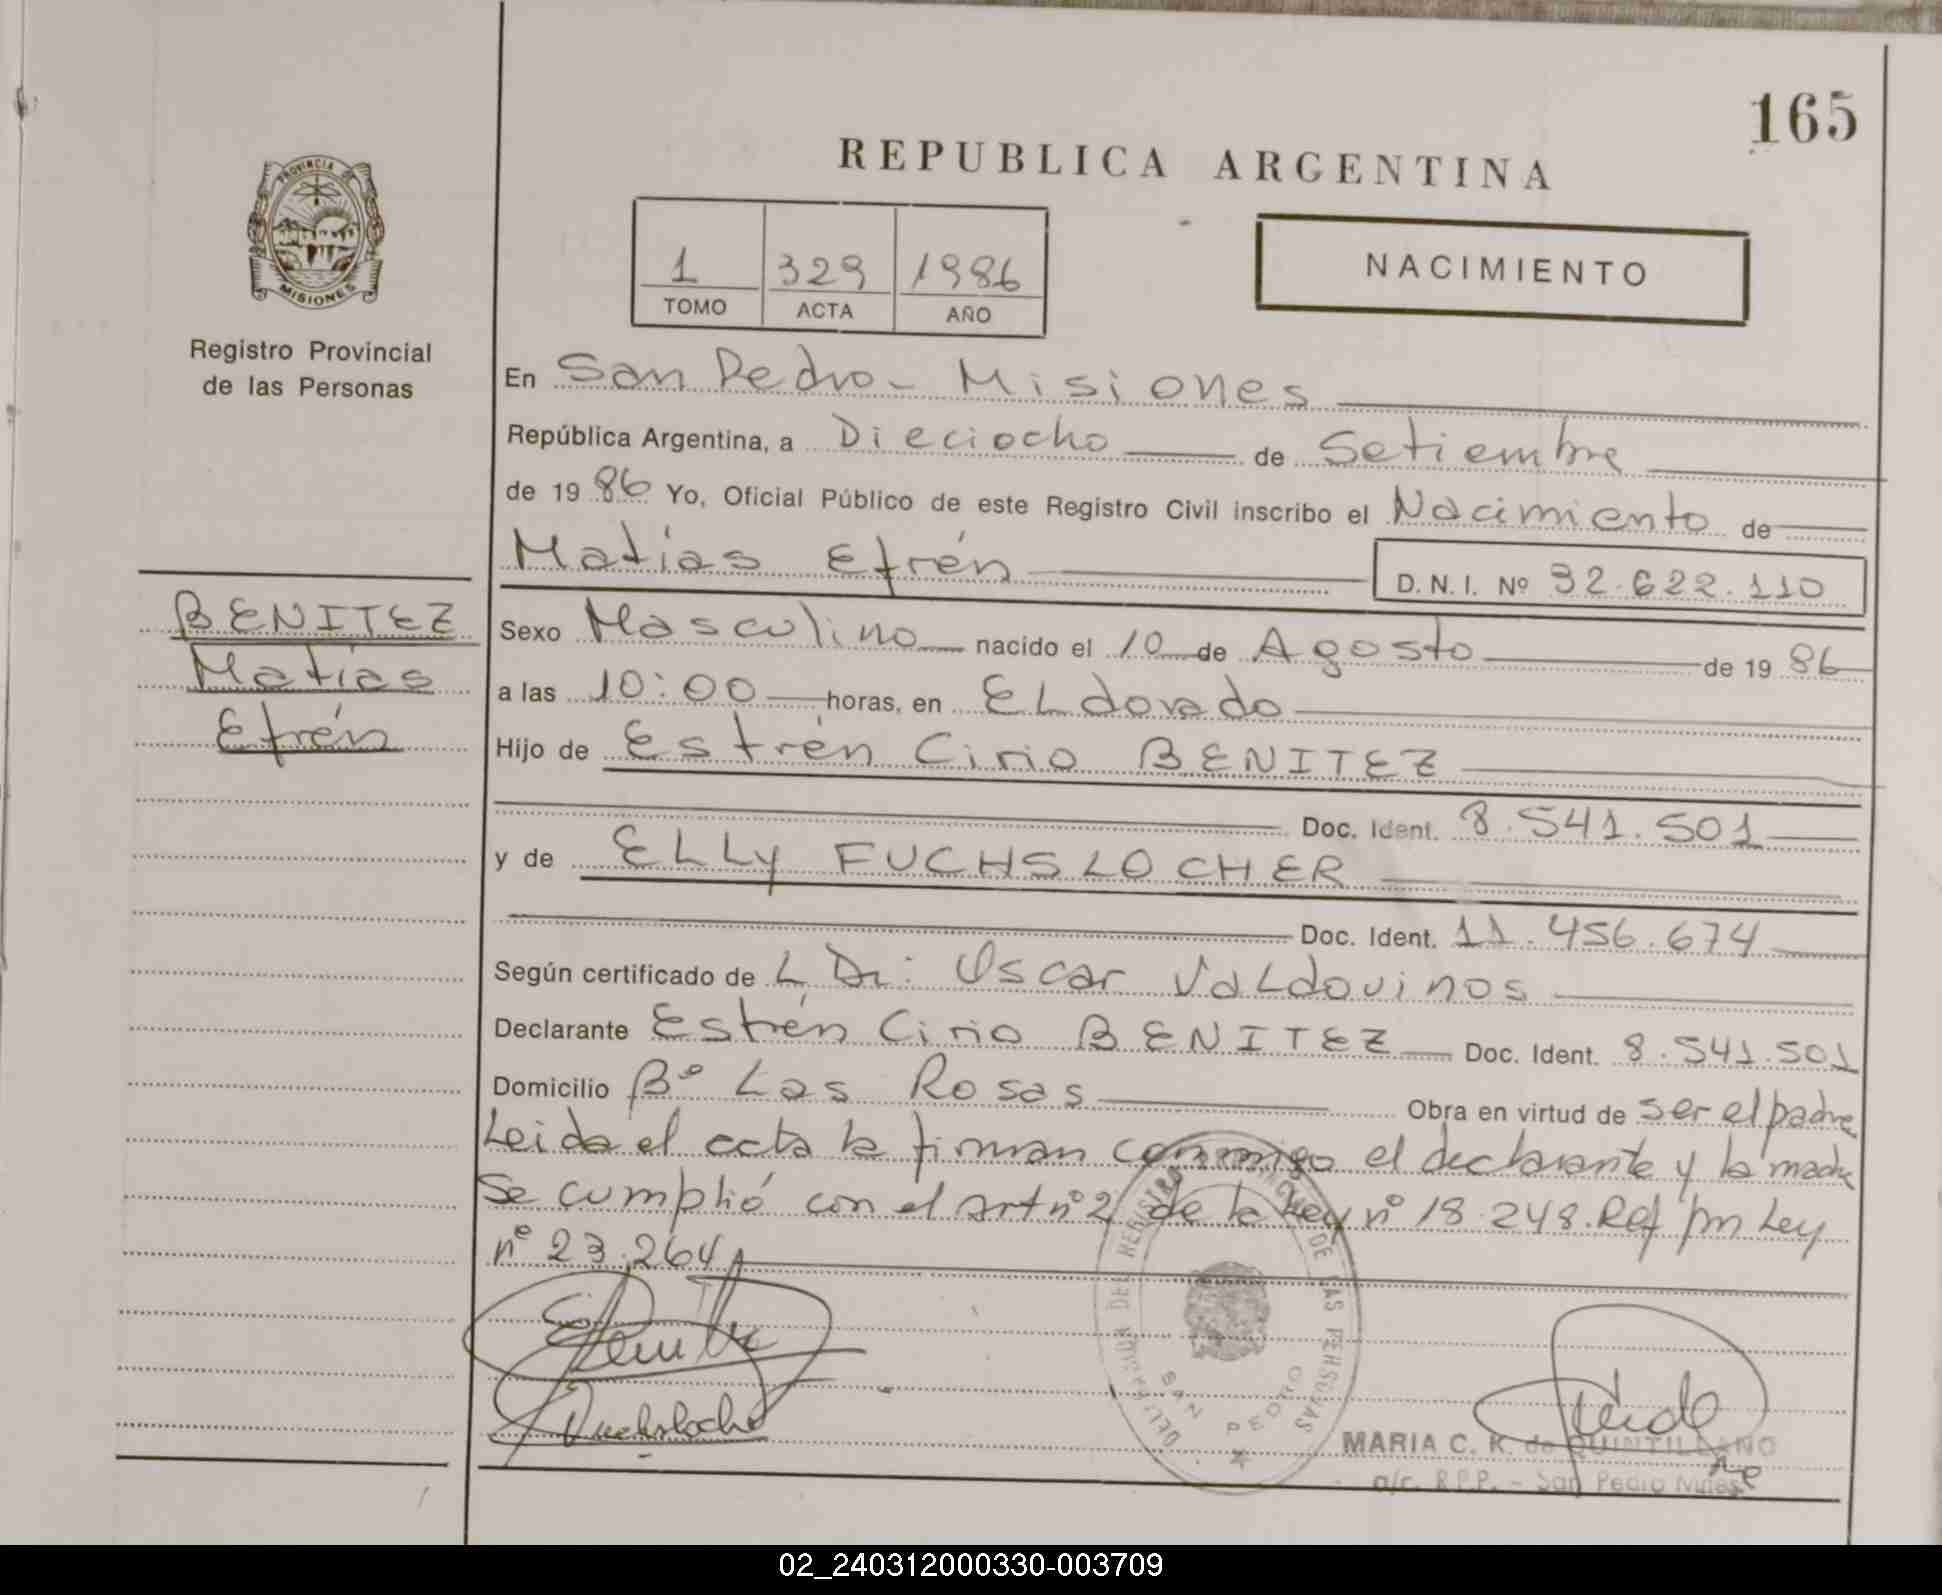 165
REPUBLICA ARGENTINA
PROVINCIA DE
MISIONES
1 329 1986
TOMO ACTA AÑO
NACIMIENTO
Registro Provincial
de las Personas
En San Pedro - Misiones
República Argentina, a Dieciocho de Setiembre
de 19 86 Yo, Oficial Público de este Registro Civil inscribo el Nacimiento de
Matías Efrén
D.N.I. Nº 32.622.110
BENITEZ
Matías
Efrén
Sexo Masculino nacido el 10 de Agosto de 19 86
a las 10:00 horas, en ELdorado
Hijo de Estrén Cirio BENITEZ
Doc. Ident. 8.541.501
y de ELLy FUCHSLOCHER
Doc. Ident. 11.456.674
Según certificado de L Dr: Oscar VaLdovinos
Declarante Estrén Cirio BENITEZ Doc. Ident. 8.541.501
Domicilio Bº Las Rosas Obra en virtud de ser el padre
Leida el acta la firman conmigo el declarante y la madre
Se cumplió con el Art nº 2 de la Ley nº 18.248. Ref por Ley
nº 23.264
DE LAS PERSONAS
SAN PEDRO
MARIA C. K. de QUINTILLANO
a/c. R.P.P. - San Pedro Mnes
02_240312000330-003709